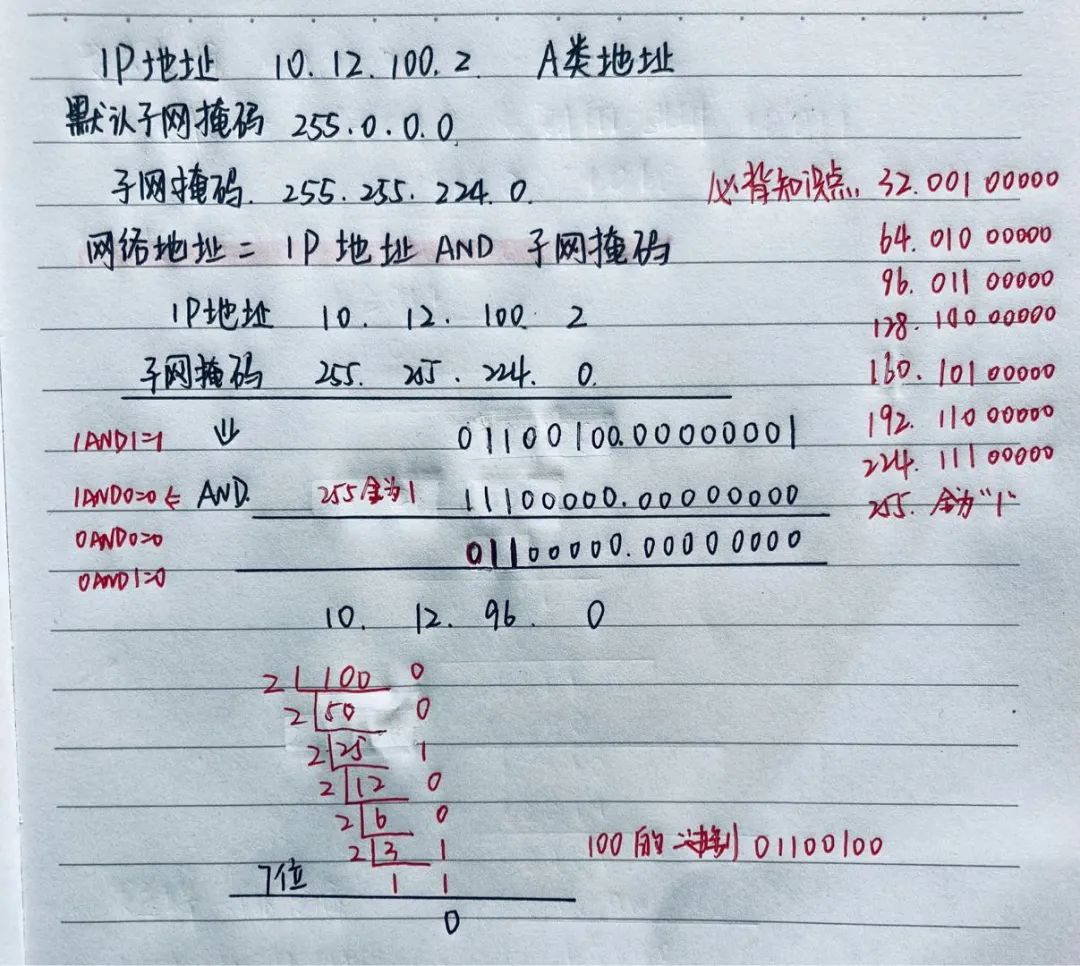 IP地址 10.12.100.2. A类地址
默认子网掩码 255.0.0.0
子网掩码. 255.255.224.0. 必背知识点. 32.001 00000
网络地址 = IP 地址 AND 子网掩码 64.010 00000
96. 011 00000
IP地址 10. 12. 100. 2 128. 100 00000
子网掩码 255. 255. 224. 0. 160. 101 00000
1AND1=1 ⇓ 01100100.00000001 192. 110 00000
224. 111 00000
1AND0=0 ⇐ AND. 255全为1 11100000.00000000 255. 全为"1"
0AND0=0 01100000.00000000
0AND1=0
10. 12. 96. 0
2 100 0
2 50 0
2 25 1
2 12 0
2 6 0
2 3 1 100的二进制 01100100
7位 1 1
0